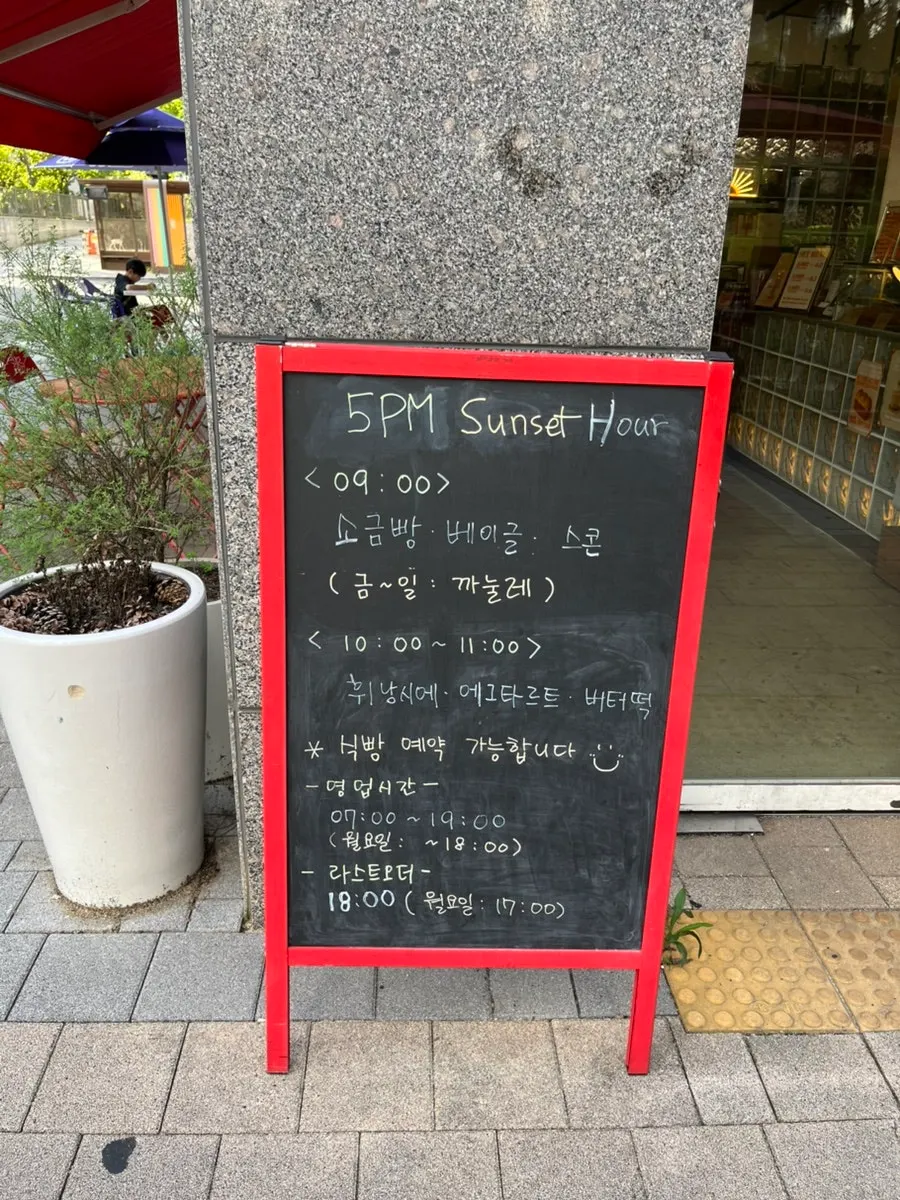 5PM Sunset Hour
< 09:00>
소금빵 · 베이글 · 스콘
( 금~일 : 까눌레 )
< 10:00 ~ 11:00 >
휘낭시에 · 에그타르트 · 버터떡
* 식빵 예약 가능합니다
- 영업시간 -
07:00 ~ 19:00
(월요일 : ~18:00)
- 라스트오더 -
18:00 ( 월요일 : 17:00)